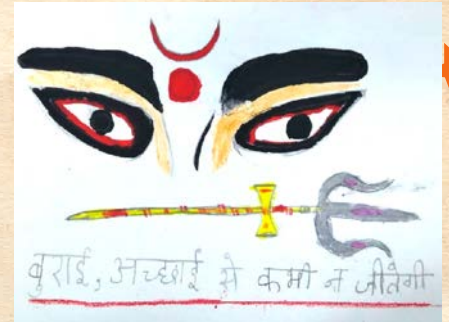 बुराई, अच्छाई से कभी न जीतेगी